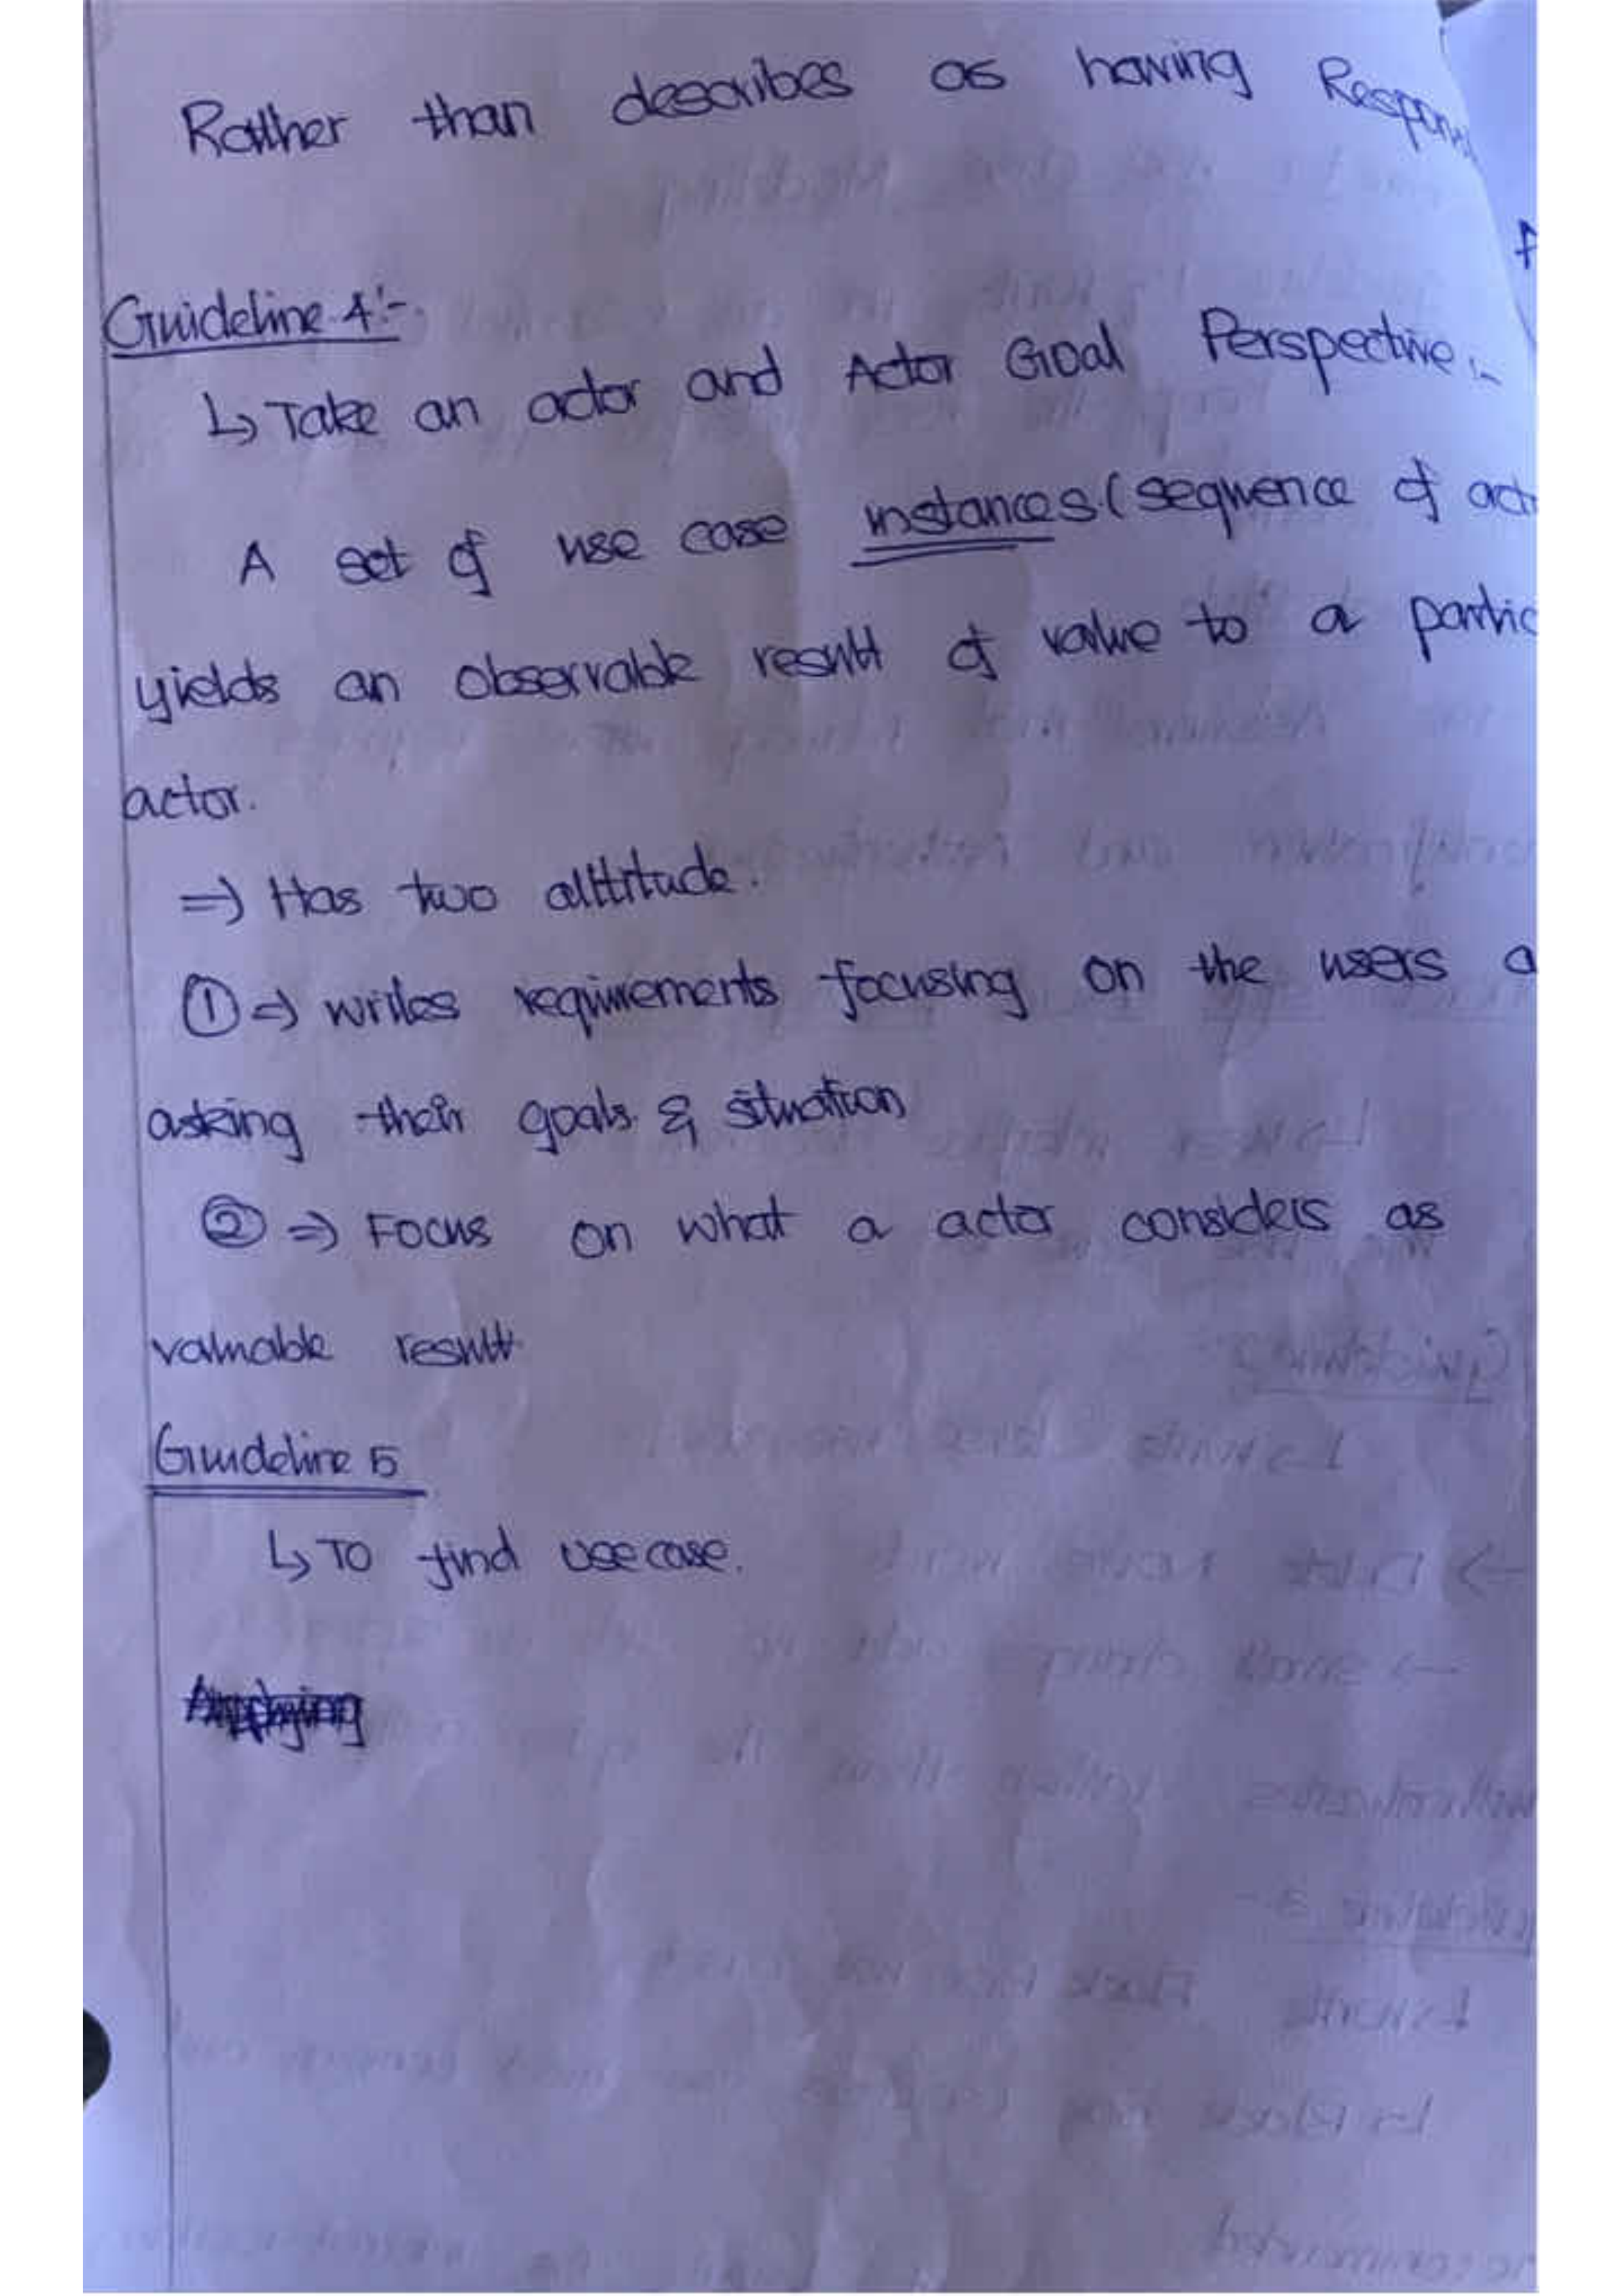 Rather than describes as having
Guideline 4:-
↳ Take an actor and Actor Goal Perspective :-
A set of use case instances (sequence of
yields an observable result of value to a
actor.
=> Has two alttitude.
① => writes requirements focusing on the users
asking their goals & situation
② => Focus on what a actor considers as
valuable result
Guideline 5
↳ To find usecase.